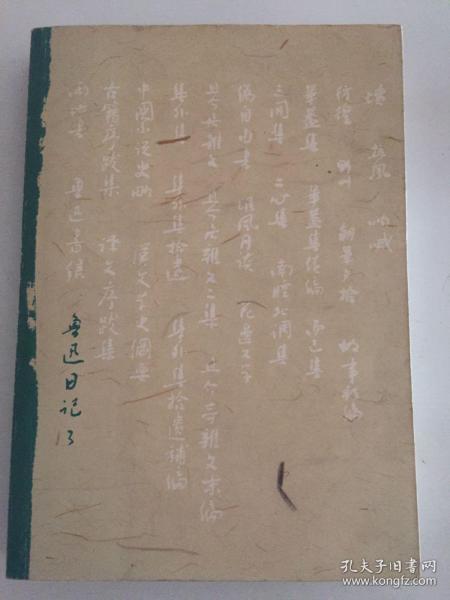 坟 热风 呐喊
彷徨 野草 朝花夕拾 故事新编
华盖集 华盖集续编 而已集
三闲集 二心集 南腔北调集
伪自由书 准风月谈 花边文学
且介亭杂文 且介亭杂文二集 且介亭杂文末编
集外集 集外集拾遗 集外集拾遗补编
中国小说史略 汉文学史纲要
古籍序跋集 译文序跋集
两地书 鲁迅书信
鲁迅日记 13
孔夫子旧书网
www.kongfz.com